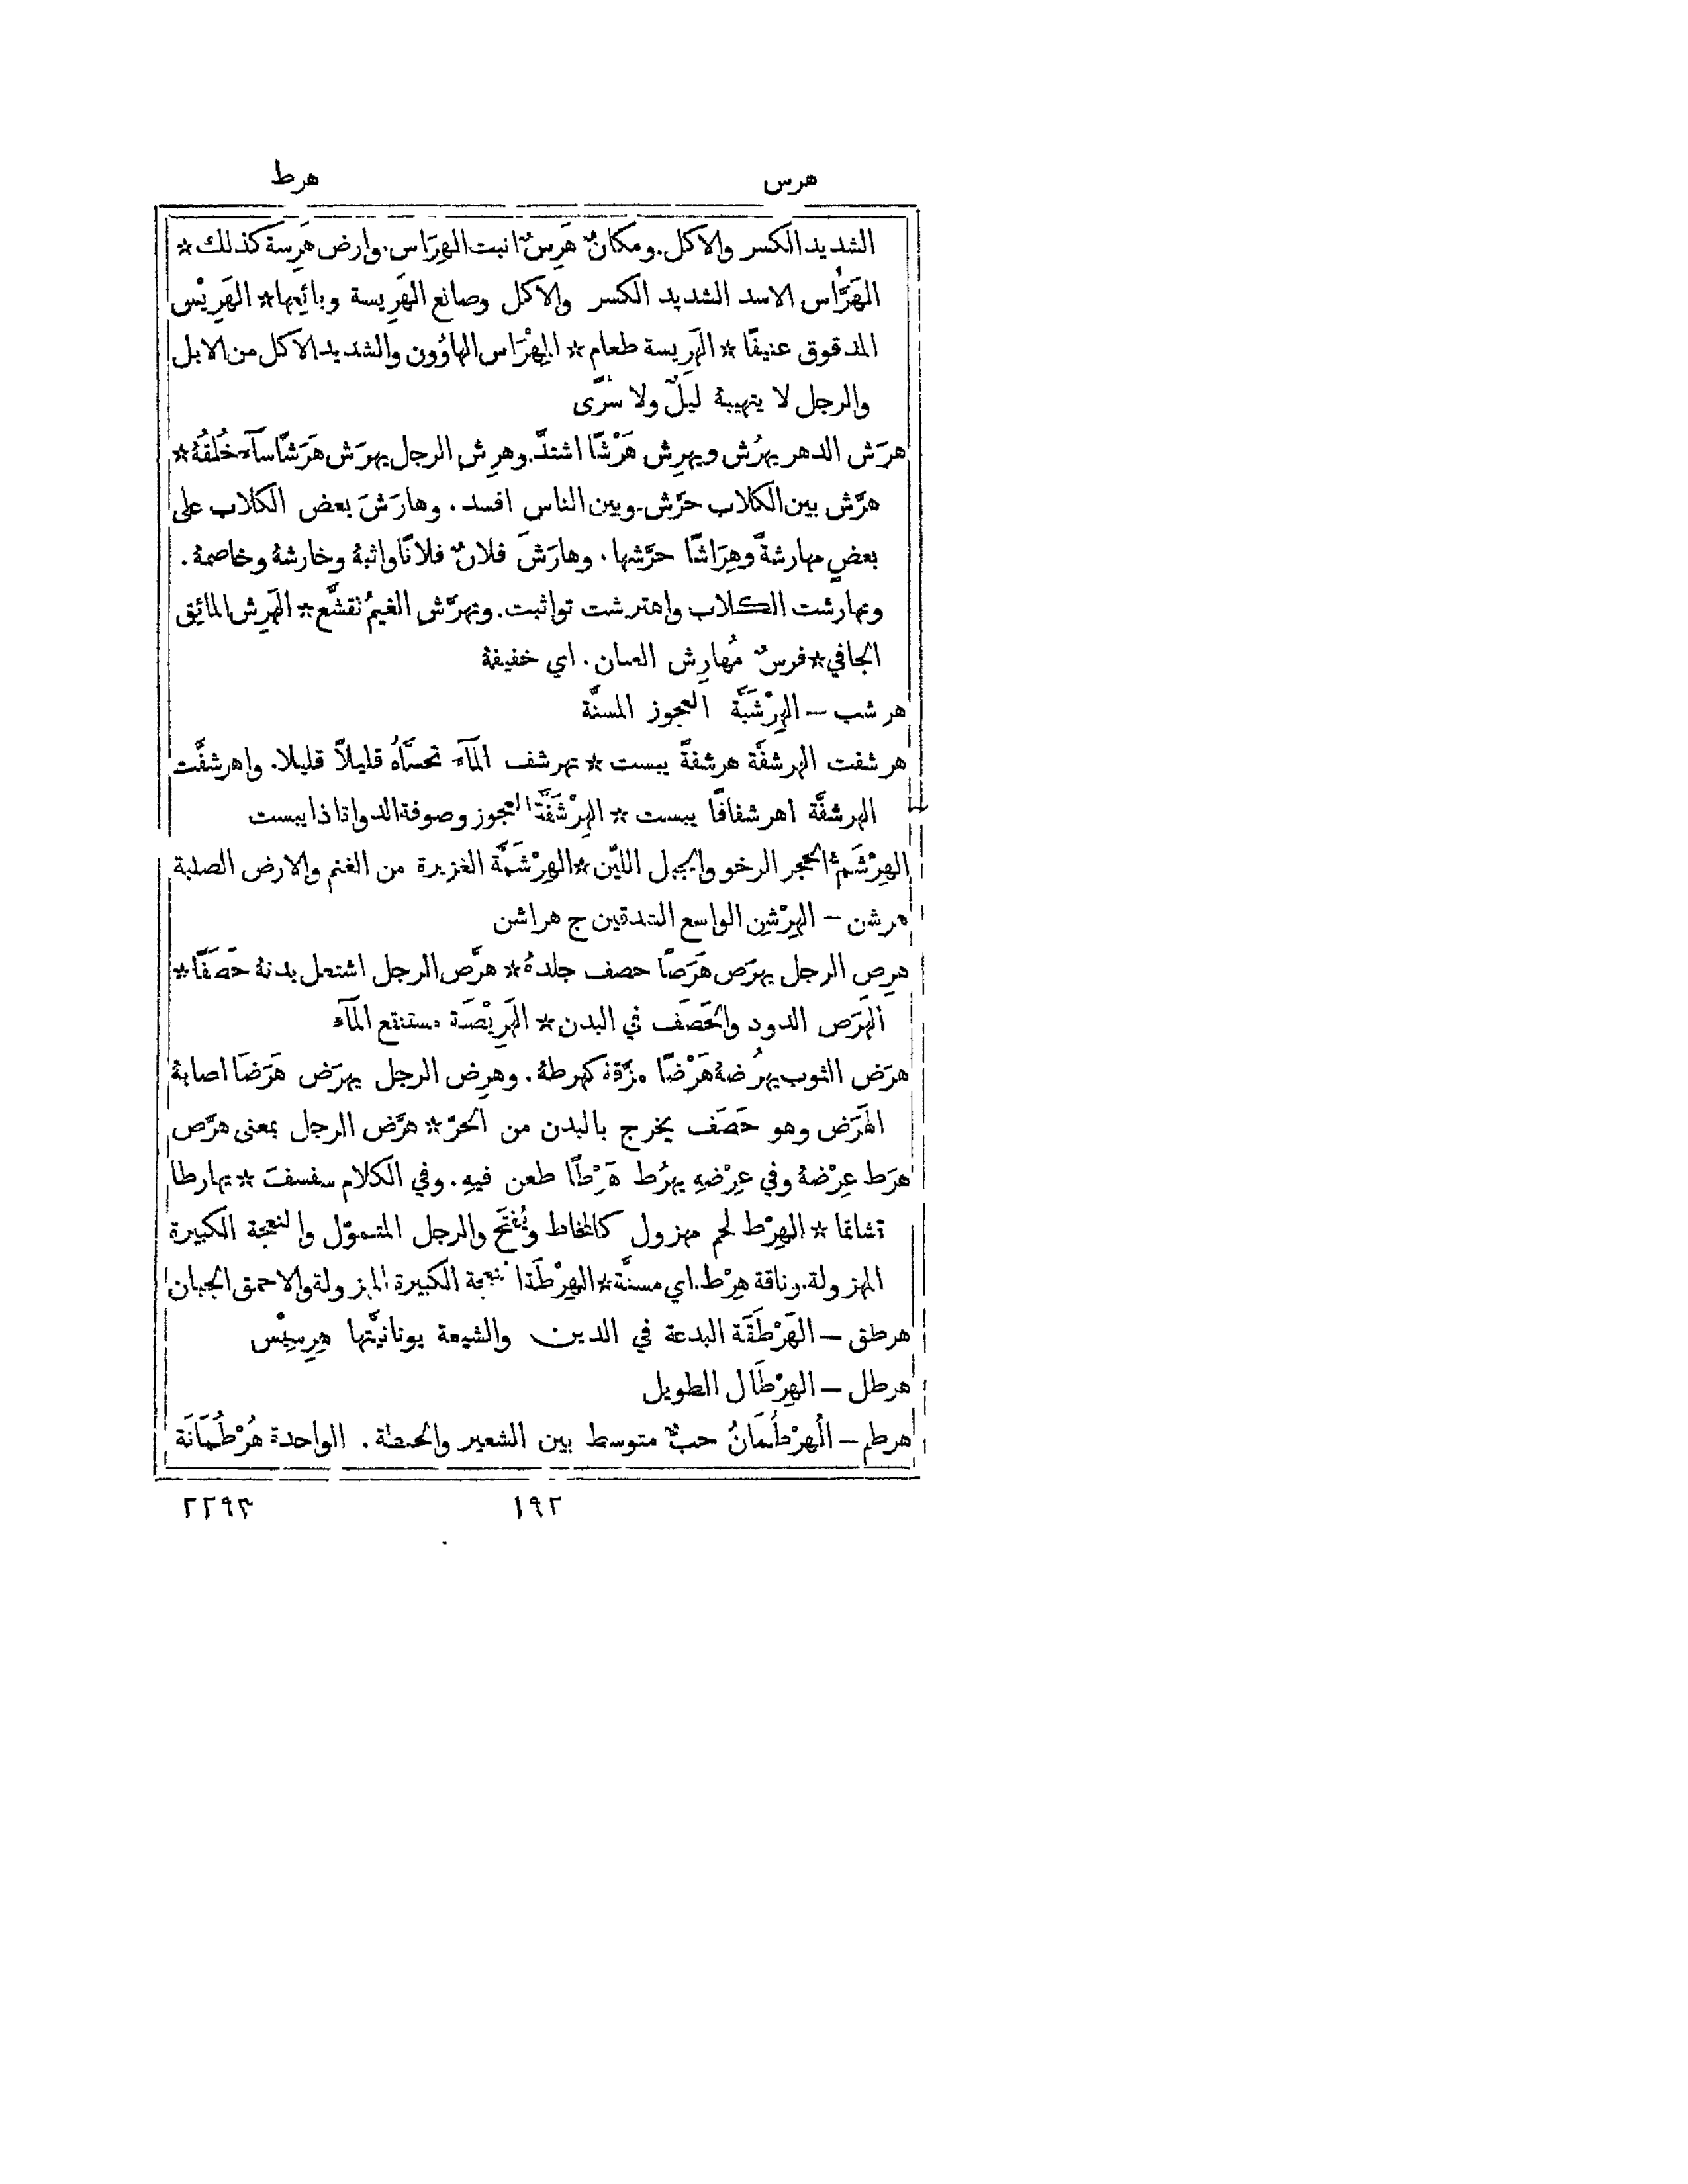 هرس هرط
الشديد الكسر والاكل. ومكانٌ هَرِسٌ انبت الهِرَاس. وارض هَرِسة كذلك *
الهَرَّاس الاسد الشديد الكسر والاكل وصانع الهَرِيسة وبائعها * الهَرِيْس
المدقوق عنيفًا * الهَرِيسة طعام * المِهْرَاس الهاوُون والشديد الاكل من الابل
والرجل لا يتهيبهٔ ليلٌ ولا سُرًى
هرَش الدهر يهرُش ويهرِش هَرْشًا اشتدَّ. وهرِش الرجل يهرَش هَرَشًا سآء خُلقُهُ *
هرَّش بين الكلاب حرَّش. وبين الناس افسد. وهارَشَ بعض الكلاب على
بعضٍ مهارشةً وهِرَاشًا حرَّشها. وهارَشَ فلانٌ فلانًا واثبهٔ وخارشهٔ وخاصمهٔ.
وتهارشت الكلاب واهترشت تواثبت. وتهرَّش الغيمُ تقشَّع * الهَرِش المائق
الجافي * فرسٌ مُهارِش العنان. اي خفيفهٔ
هرشب – الهِرْشَبَّة العجوز المسنَّة
هرشفت الهرشفَّة هرشفةً يبست * تهرشف المآء تحسَّاهُ قليلاً قليلا. واهرشفَّت
الهرشفَّة اهرشفافًا يبست * الهِرْشَفَّة العجوز وصوفة الدواة اذا يبست
الهِرْشَمّ الحجر الرخو والجبل الليّن * الهِرْشَمَّة الغزيرة من الغنم والارض الصلبة
هرشن – الهِرْشِن الواسع الشدقين ج هراشن
هرِص الرجل يهرَص هَرَصًا حصف جلدهُ * هرَّص الرجل اشتعل بدنهٔ حَصَفًا *
الهَرَص الدود والحَصَف في البدن * الهَرِيْصَة مستنقع المآء
هرَض الثوب يهرُضهٔ هَرْضًا مزَّقهٔ كهرطهٔ. وهرِض الرجل يهرَض هَرَضًا اصابهٔ
الهَرَض وهو حَصَف يخرج بالبدن من الحرّ * هرَّض الرجل بمعنى هرَّص
هرَط عِرْضهٔ وفي عِرْضهِ يهرُط هَرْطًا طعن فيهِ. وفي الكلام سفسفَ * تهارطا
تشاتما * الهِرْط لحم مهزول كالمخاط ويُفتَح والرجل المتموّل والنعجة الكبيرة
المهزولة. وناقة هِرْط. اي مسنَّة * الهِرْطَة النعجة الكبيرة المهزولة والاحمق الجبان
هرطق – الهَرْطَقَة البدعة في الدين والشيعة يونانيَّتها هِرِسِيْس
هرطل – الهِرْطَال الطويل
هرطم – الهُرْطُمَانُ حبٌّ متوسط بين الشعير والحنطة. الواحدة هُرْطُمَانَة
١٩٢ ٢٢٩٣